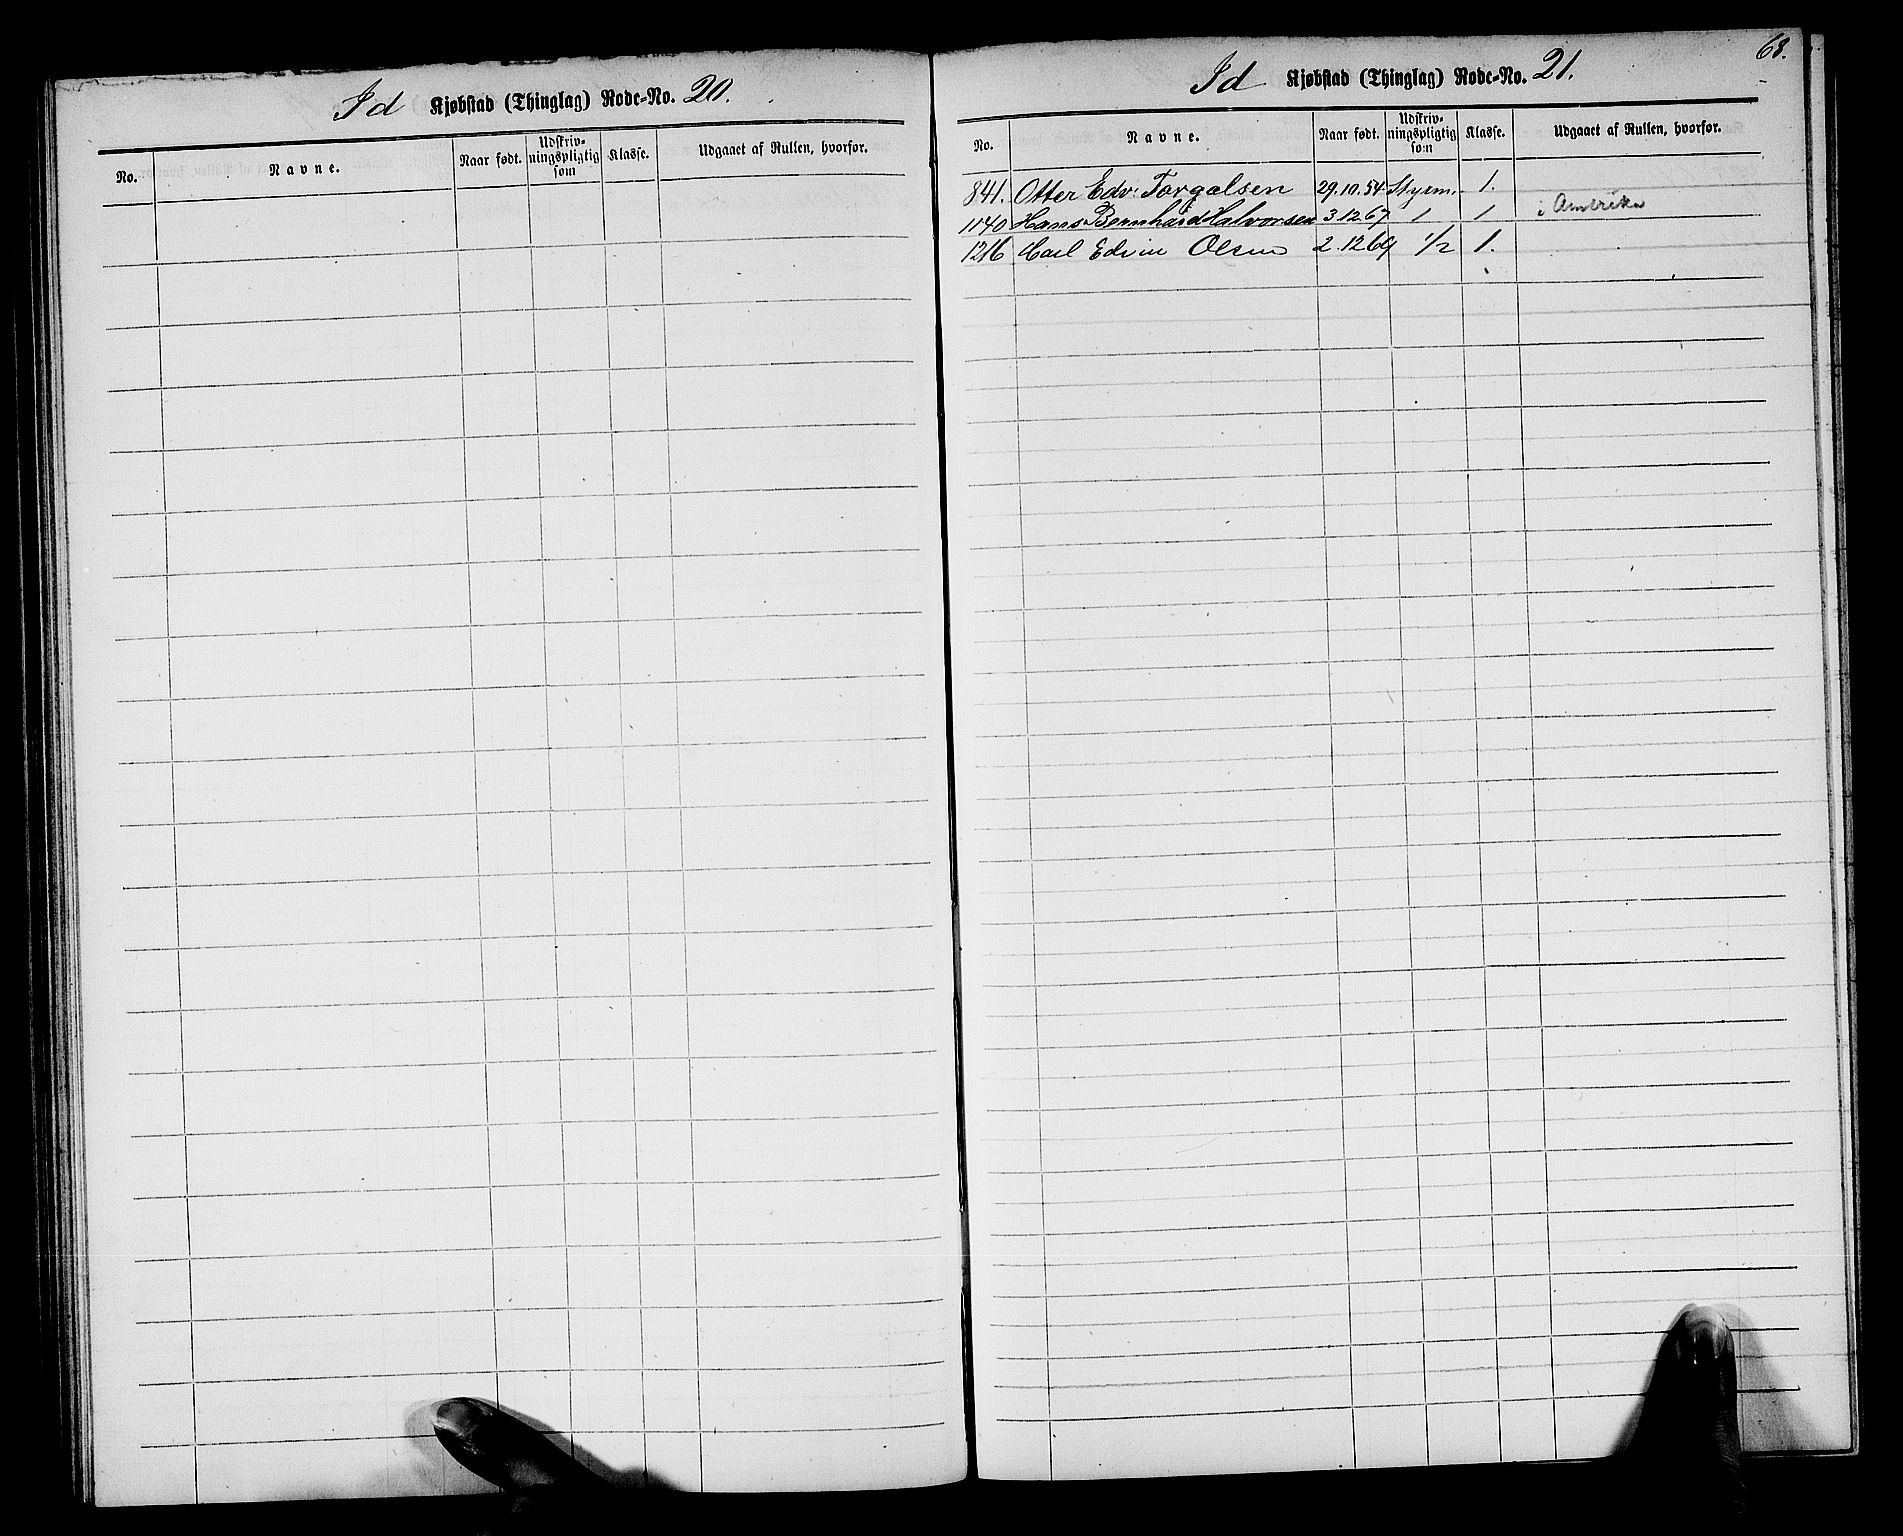 Id Kjøbstad (Thinglag) Rode-No. 20.
No. Navne. Naar født. Udskrivningspligtig som Klasse. Udgaaet af Rullen, hvorfor.
68.
Id Kjøbstad (Thinglag) Rode-No. 21.
No. Navne. Naar født. Udskrivningspligtig som Klasse. Udgaaet af Rullen, hvorfor.
841. Otter Edv. Torgalsen 29.10.54 Styrm. 1.
1140 Hans Bernhard Halvorsen 3.12 67 1 1 i Amerika
1216 Carl Edvin Olsen 2.12 69 1/2 1.